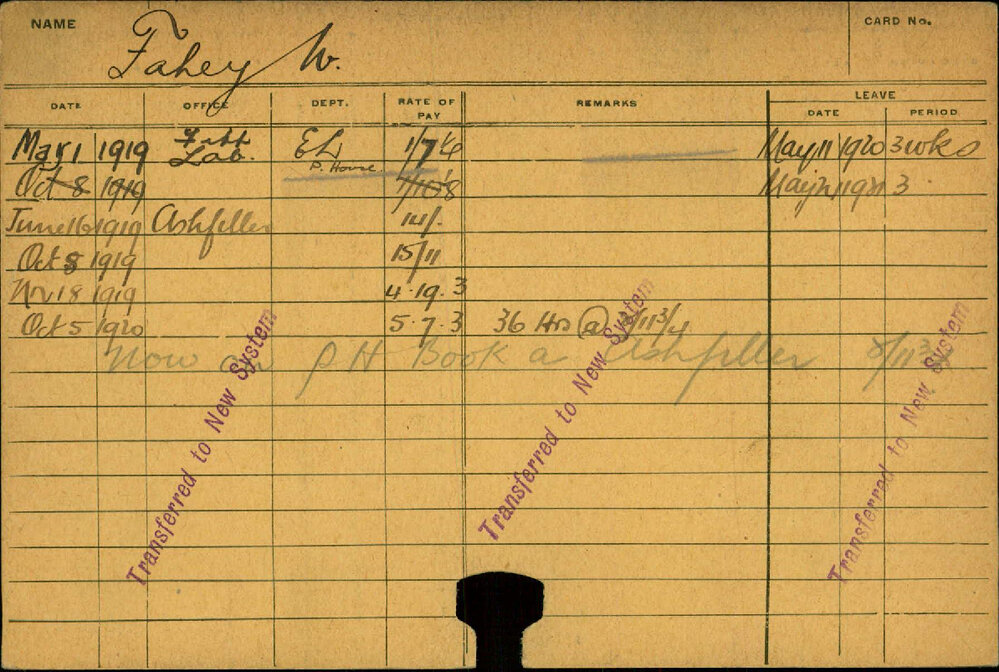 NAME Fahey W. CARD No.
DATE OFFICE DEPT. RATE OF PAY REMARKS LEAVE DATE PERIOD
May 1 1919 Lab. EL 1/7 May 11 1920 3 wks
P. House
Oct 8 1919 May 1921 3
June 16 1919 Ashfiller 14/-
Oct 8 1919 15/11
Nov 18 1919 4.19.3
Oct 5 1920 5.7.3 36 Hrs @ /11 3/4
Now on PH Book a Ashfiller 8/11 3
Transferred to New System
Transferred to New System
Transferred to New System